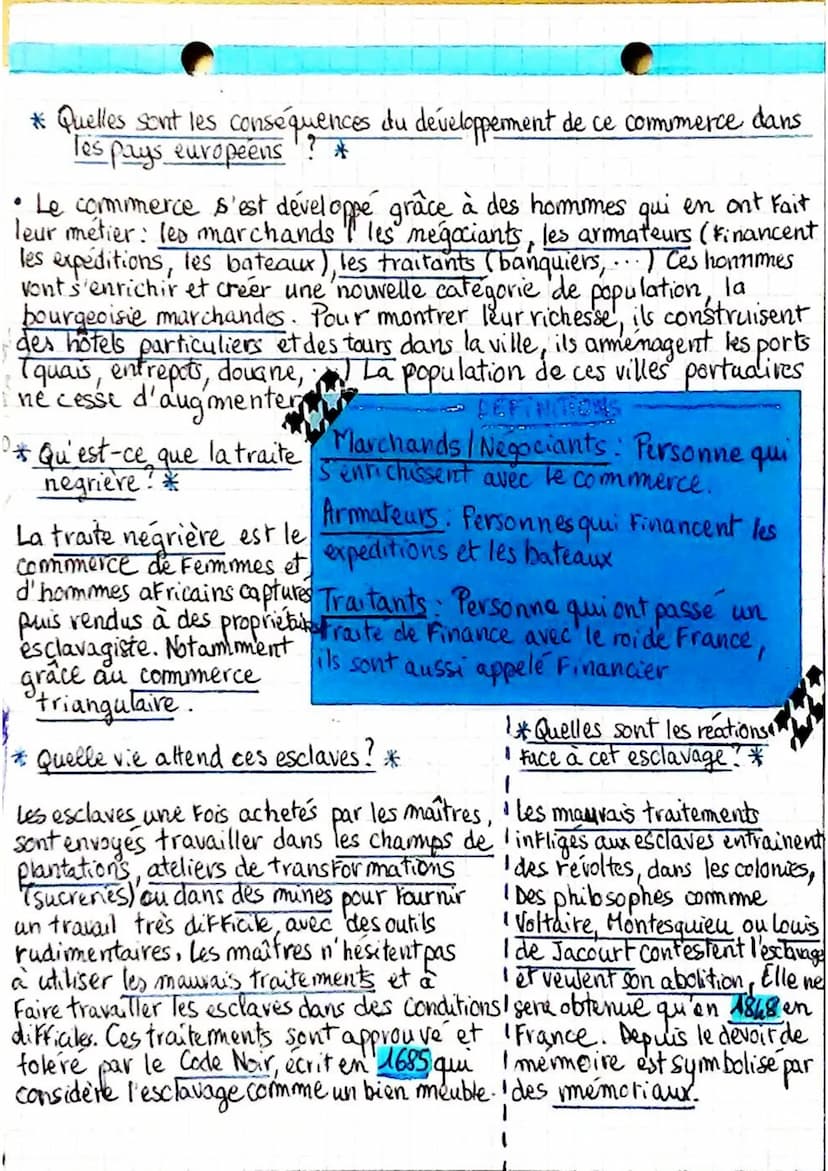 * Quelles sont les conséquences du développement de ce commerce dans
les pays européens ? *
• Le commerce s'est développé grâce à des hommes qui en ont fait
leur métier : les marchands / les négociants, les armateurs (financent
les expéditions, les bateaux), les traitants (banquiers, ...) Ces hommes
vont s'enrichir et créer une nouvelle catégorie de population, la
bourgeoisie marchandes. Pour montrer leur richesse, ils construisent
des hôtels particuliers et des tours dans la ville, ils aménagent les ports
(quais, entrepots, douane, ...) La population de ces villes portuaires
ne cesse d'augmenter
DEFINITIONS
Marchands / Négociants : Personne qui
s'enrichissent avec le commerce.
Armateurs : Personnes qui financent les
expéditions et les bateaux
Traitants : Personne qui ont passé un
traite de finance avec le roi de France,
ils sont aussi appelé financier
* Qu'est-ce que la traite
negrière ? *
La traite négrière est le
commerce de femmes et
d'hommes africains captures
puis vendus à des propriétaires
esclavagiste. Notamment
grâce au commerce
triangulaire.
* Quelle vie attend ces esclaves ? *
Les esclaves une fois achetés par les maîtres,
sont envoyés travailler dans les champs de
plantations, ateliers de transformations
(sucreries) ou dans des mines pour fournir
un travail très difficile, avec des outils
rudimentaires. Les maîtres n'hésitent pas
à utiliser les mauvais traitements et à
faire travailler les esclaves dans des conditions
difficiles. Ces traitements sont approuvé et
toléré par le Code Noir, écrit en 1685 qui
considère l'esclavage comme un bien meuble.
* Quelles sont les réations
face à cet esclavage ? *
Les mauvais traitements
infligés aux esclaves entrainent
des révoltes, dans les colonies,
Des philosophes comme
Voltaire, Montesquieu ou Louis
de Jacourt contestent l'esclavage
et veulent son abolition, Elle ne
sera obtenue qu'en 1848 en
France. Depuis le devoir de
mémoire est symbolisé par
des mémoriaux.